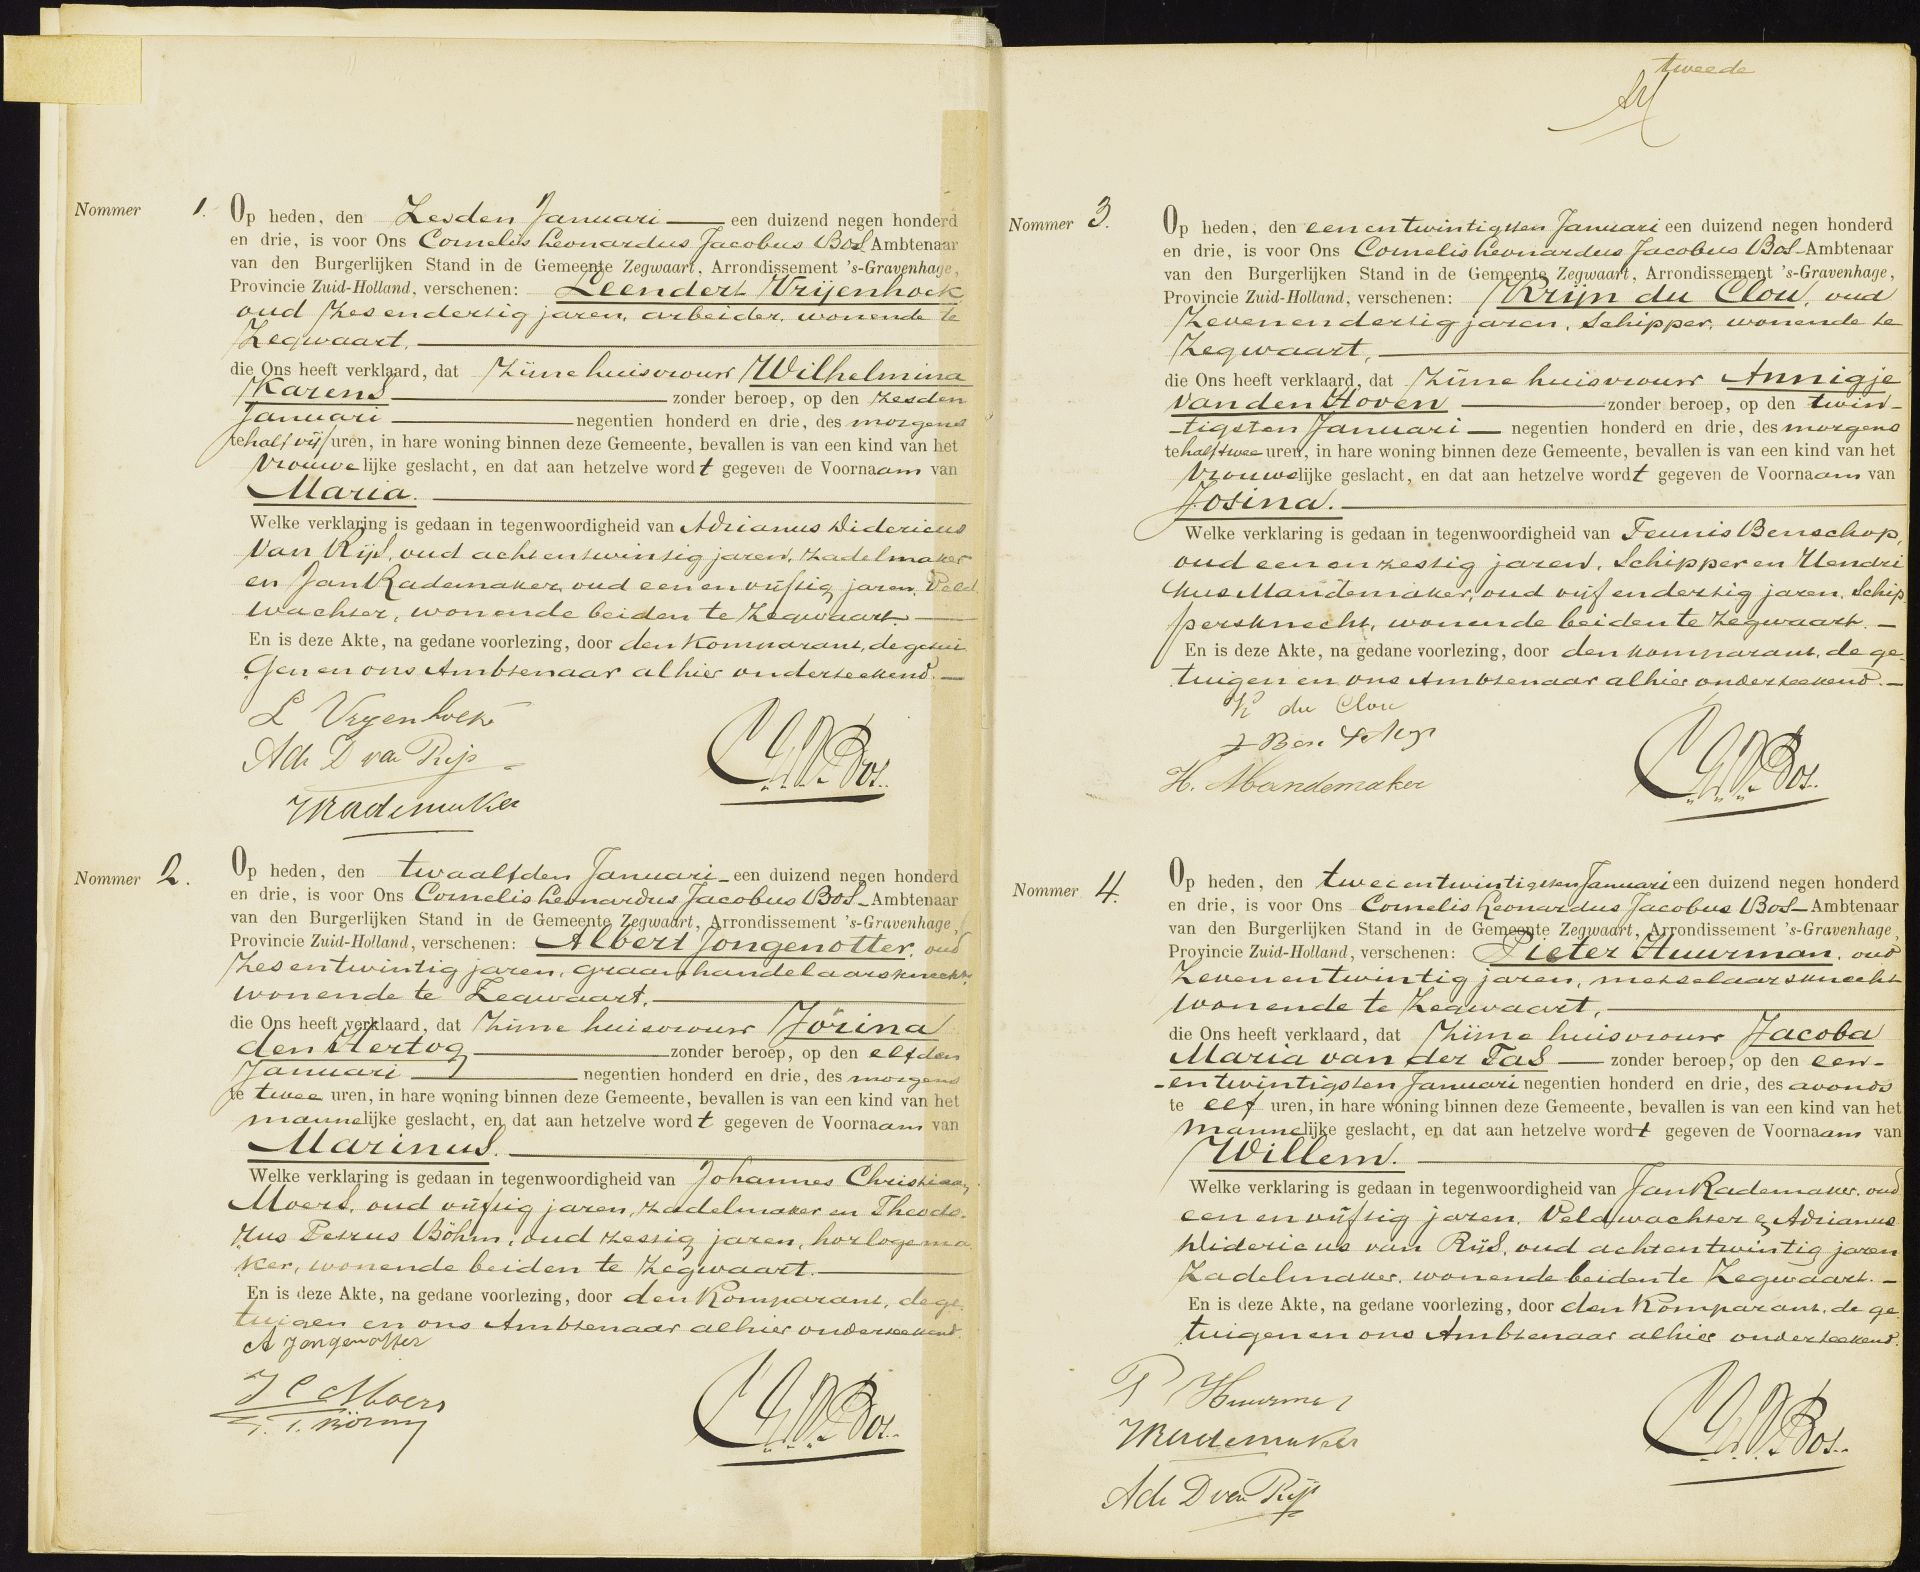 Nommer 1.
Op heden, den Zesden Januari een duizend negen honderd
en drie, is voor Ons Cornelis Leonardus Jacobus Bos Ambtenaar
van den Burgerlijken Stand in de Gemeente Zegwaart, Arrondissement 's-Gravenhage,
Provincie Zuid-Holland, verschenen: Leendert Vrijenhoek
oud Zesendertig jaren, arbeider, wonende te
Zegwaart,
die Ons heeft verklaard, dat Zijne huisvrouw Wilhelmina
Karens zonder beroep, op den zesden
Januari negentien honderd en drie, des morgens
te half vijf uren, in hare woning binnen deze Gemeente, bevallen is van een kind van het
Vrouwelijke geslacht, en dat aan hetzelve wordt gegeven de Voornaam van
Maria.
Welke verklaring is gedaan in tegenwoordigheid van Adrianus Didericus
van Rijs, oud achtentwintig jaren, Zadelmaker
en Jan Rademaker, oud eenenvijftig jaren, Veld
wachter, wonende beiden te Zegwaart.
En is deze Akte, na gedane voorlezing, door den Komparant, de getui
gen en ons Ambtenaar alhier onderteekend.
L Vryenhoek
Adr D van Rijs
JRademaker
CLJBos.
Nommer 2.
Op heden, den twaalfden Januari een duizend negen honderd
en drie, is voor Ons Cornelis Leonardus Jacobus Bos Ambtenaar
van den Burgerlijken Stand in de Gemeente Zegwaart, Arrondissement 's-Gravenhage,
Provincie Zuid-Holland, verschenen: Albert Jongenotter, oud
Zesentwintig jaren, graanhandelaarsknecht,
wonende te Zegwaart,
die Ons heeft verklaard, dat Zijne huisvrouw Jorina
den Hertog zonder beroep, op den elfden
Januari negentien honderd en drie, des morgens
te twee uren, in hare woning binnen deze Gemeente, bevallen is van een kind van het
mannelijke geslacht, en dat aan hetzelve wordt gegeven de Voornaam van
Marinus.
Welke verklaring is gedaan in tegenwoordigheid van Johannes Christiaan
Moers, oud vijftig jaren, zadelmaker en Theodo-
rus Petrus Böhm, oud zestig jaren, horlogema
ker, wonende beiden te Zegwaart.
En is deze Akte, na gedane voorlezing, door den Komparant, de ge-
tuigen en ons Ambtenaar alhier onderteekend.
A Jongenotter
J C Moers
T. P. Böhm
CLJBos.
tweede
Nommer 3.
Op heden, den eenentwintigsten Januari een duizend negen honderd
en drie, is voor Ons Cornelis Leonardus Jacobus Bos Ambtenaar
van den Burgerlijken Stand in de Gemeente Zegwaart, Arrondissement 's-Gravenhage,
Provincie Zuid-Holland, verschenen: Krijn du Clou, oud
Zevenendertig jaren, Schipper, wonende te
Zegwaart,
die Ons heeft verklaard, dat Zijne huisvrouw Annigje
van den Hoven zonder beroep, op den twin-
-tigsten Januari negentien honderd en drie, des morgens
te half twee uren, in hare woning binnen deze Gemeente, bevallen is van een kind van het
Vrouwelijke geslacht, en dat aan hetzelve wordt gegeven de Voornaam van
Josina.
Welke verklaring is gedaan in tegenwoordigheid van Teunis Benschop,
oud eenenzestig jaren, Schipper en Hendri
kus Mandemaker, oud vijfendertig jaren, Schip
persknecht, wonende beiden te Zegwaart.
En is deze Akte, na gedane voorlezing, door den komparant, de ge-
tuigen en ons Ambtenaar alhier onderteekend.
K du Clou
H. Mandemaker
CLJBos.
Nommer 4.
Op heden, den tweeentwintigsten Januari een duizend negen honderd
en drie, is voor Ons Cornelis Leonardus Jacobus Bos Ambtenaar
van den Burgerlijken Stand in de Gemeente Zegwaart, Arrondissement 's-Gravenhage,
Provincie Zuid-Holland, verschenen: Pieter Huurman, oud
Zevenentwintig jaren, metselaarsknecht
wonende te Zegwaart,
die Ons heeft verklaard, dat Zijne huisvrouw Jacoba
Maria van der Tas zonder beroep, op den een-
-entwintigsten Januari negentien honderd en drie, des avonds
te elf uren, in hare woning binnen deze Gemeente, bevallen is van een kind van het
mannelijke geslacht, en dat aan hetzelve wordt gegeven de Voornaam van
Willem.
Welke verklaring is gedaan in tegenwoordigheid van Jan Rademaker, oud
eenenvijftig jaren, Veldwachter & Adrianus
Didericus van Rijs, oud achtentwintig jaren
Zadelmaker, wonende beiden te Zegwaart.
En is deze Akte, na gedane voorlezing, door den Komparant, de ge
tuigen en ons Ambtenaar alhier onderteekend.
P Huurman
JRademaker
Adr D van Rijs
CLJBos.